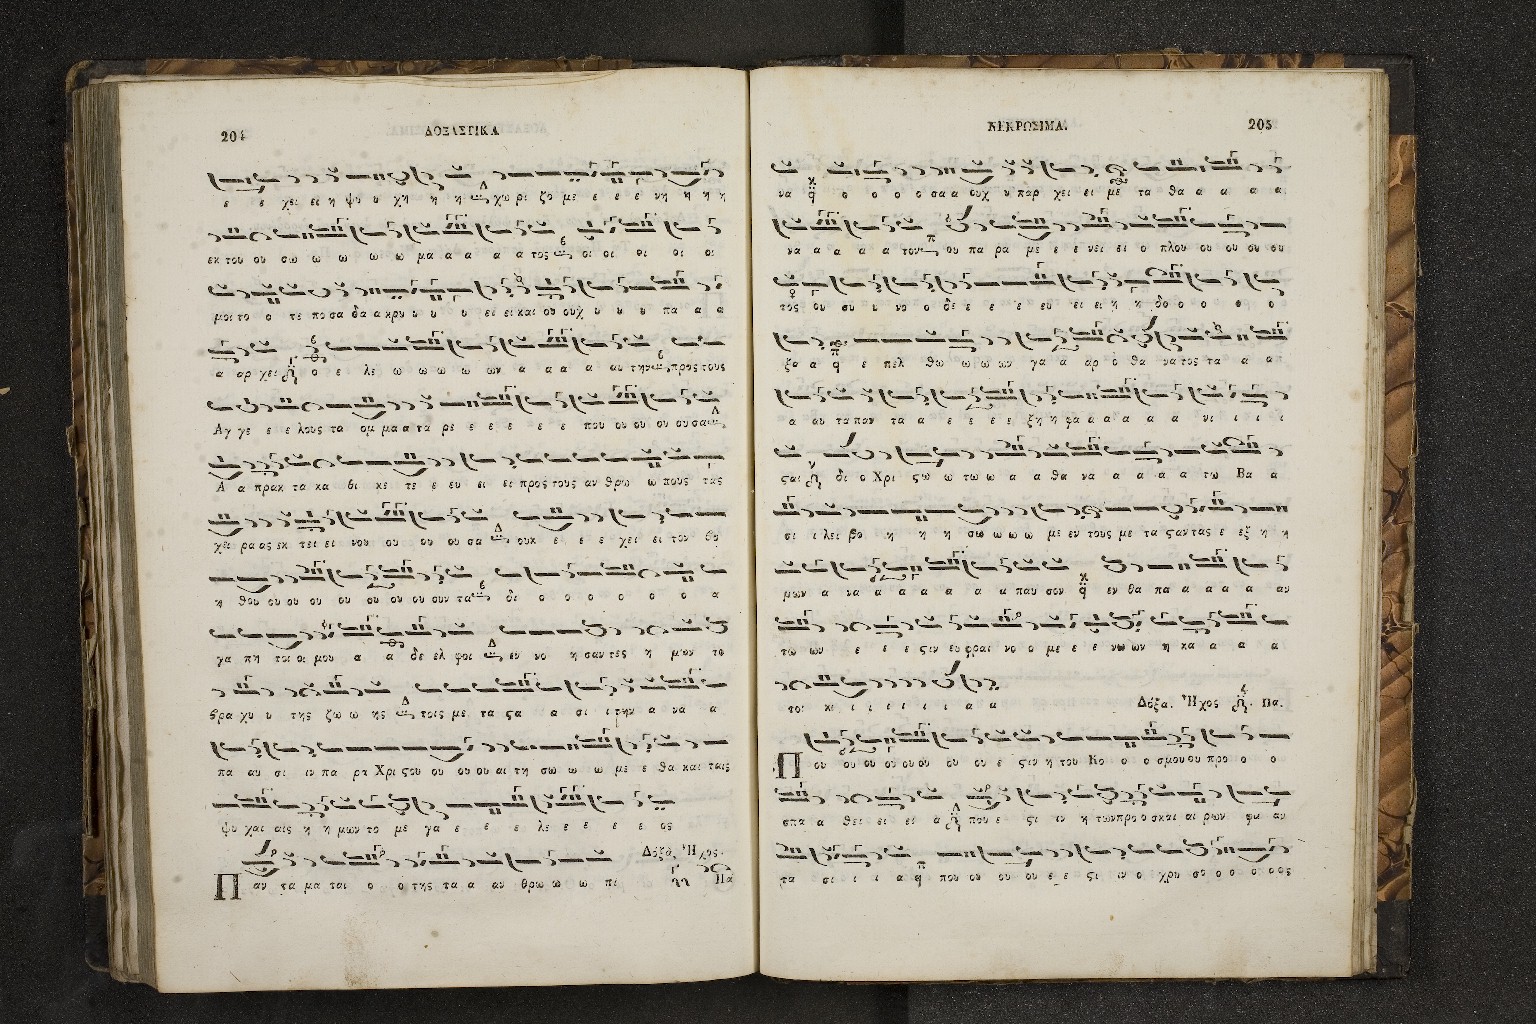 204
ΔΟΞΑΣΤΙΚΑ
ε ε χει ει η ψυ υ χη η η χω ρι ζο με ε ε ε νη η η η
εκ του ου σω ω ω ω ω μα α α α α τος οι οι οι οι οι
μοι το ο τε πο σα δα α κρυ υ υ υ ει ει και ου ουχ υ υ υ πα α α
α αρ χει ο ε λε ω ω ω ω ων α α α α αυ την προς τους
Αγ γε ε ε λους τα ομ μα α τα ρε ε ε ε ε ε ε που ου ου ου ου σα
Α α πρακ τα κα θι κε τε ε ευ ει ει προς τους αν θρω ω πους τας
χει ρα ας εκ τει ει νου ου ου ου ου σα ουκ ε ε ε χει ει τον βο
η θου ου ου ου ου ου ου ου ουν τα δι ο ο ο ο ο ο α
γα πη τοι οι μου α α δε ελ φοι εν νο η σαν τες η μων το
βρα χυ υ της ζω ω ης τοις με τα ςα α σι ι την α να α
πα αυ σι ιν πα ρα Χρι ςου ου ου ου αι τη σω ω ω με ε θα και ταις
ψυ χαι αις η η μων το με γα ε ε ε λε ε ε ε ε ος
Δόξα, Ἦχος
Παν τα μα ται ο ο της τα α αν θρω ω ω πι Πα
ΝΕΚΡΩΣΙΜΑ.
205
να ο ο ο ο σα α ουχ υ παρ χει ει με τα θα α α α α
να α α α α τον ου πα ρα με ε ε νει ει ο πλου ου ου ου ου
τος ου συ υ νο ο δε ε ε ε ευ ει ει η η δο ο ο ο ο
ξα α ε πελ θω ω ω ων γα α αρ ο θα να τος τα α α
α αυ τα παν τα α ε ε ε ε ξη η φα α α α α α νι ι ι ι
ςαι δι ο Χρι ςω ω τω ω α α θα να α α α α τω Βα α
σι ι λει βο η η η σω ω ω ω με εν τους με τα ςαν τας ε εξ η η
μων α να α α α α α α παυ σον εν θα πα α α α α αυ
τω ων ε ε ε ςιν ευ φραι νο ο με ε ε νω ων η κα α α α
τοι κι ι ι ι ι ι α α
Δόξα. Ἦχος Πα.
Που ου ου ου ου ου ου ου ε ςιν η του Κο ο ο σμου ου προ ο ο
σπα α θει ει ει α που ε ςι ιν η των προ ο σκαι αι ρων φα αν
τα σι ι ι α που ου ου ου ε ε ςι ιν ο χρυ σο ο ο ο ος